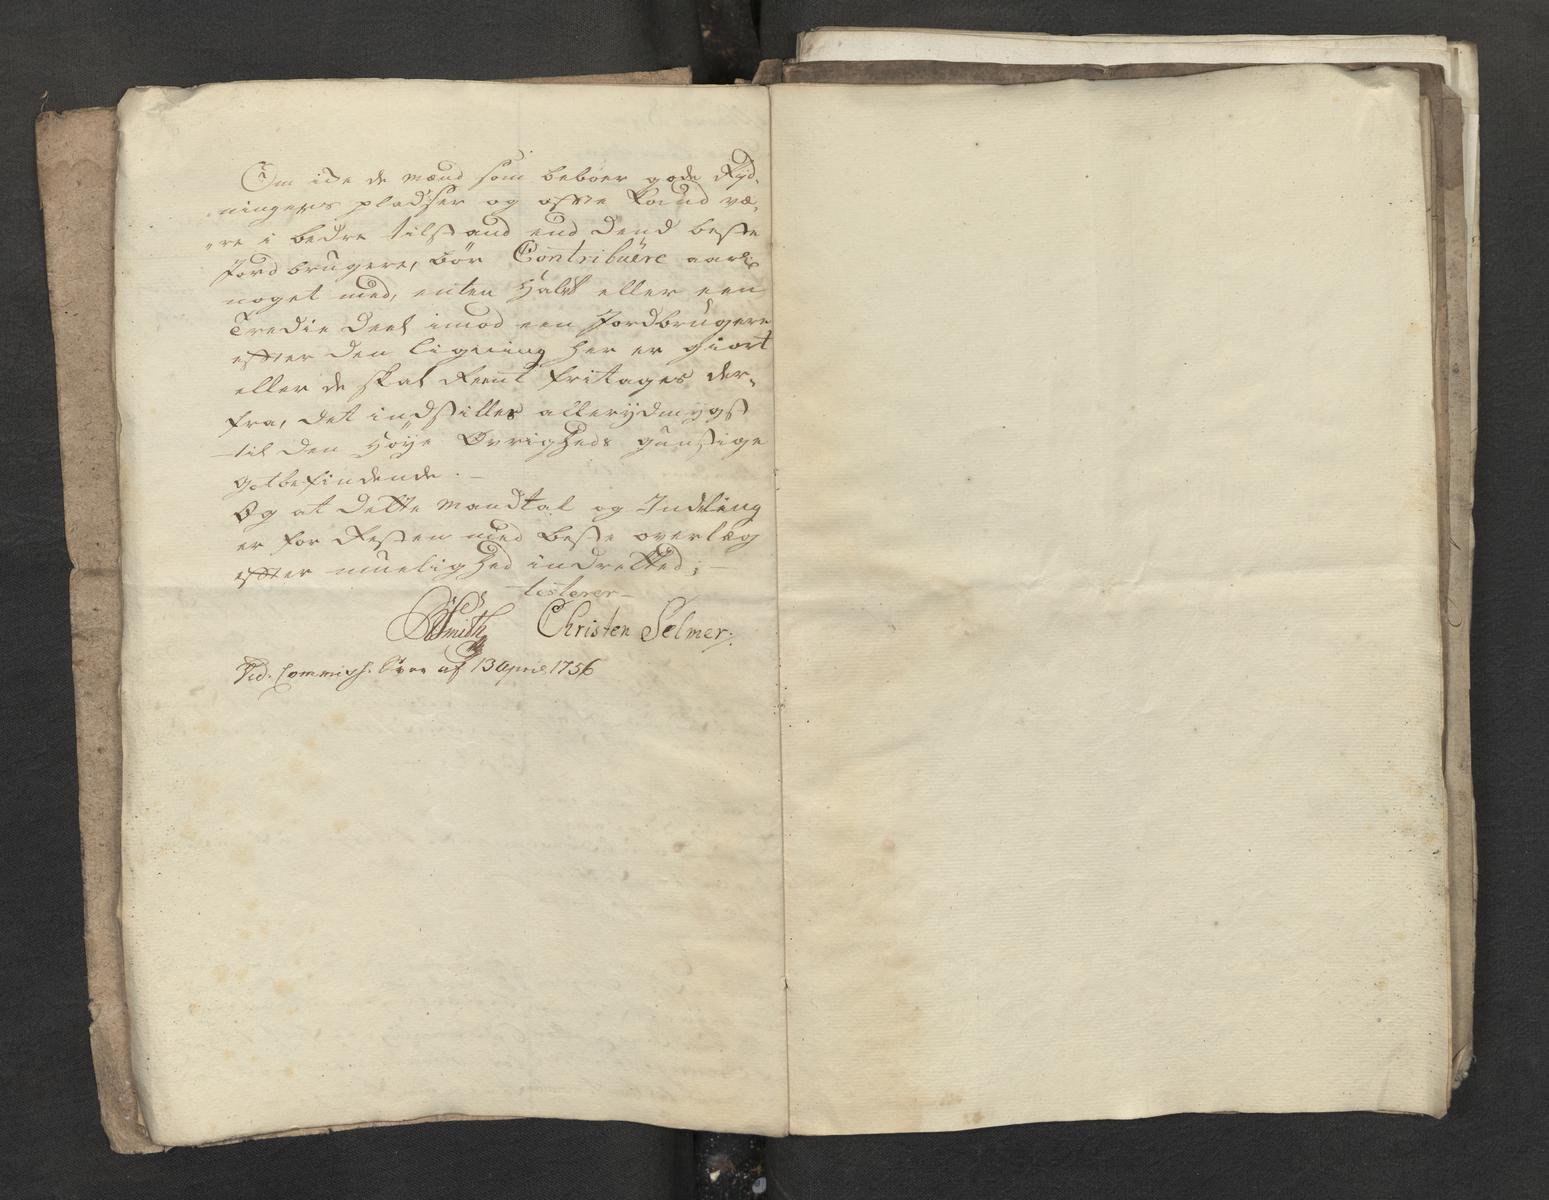 Om icke de mænd som beboer gode Ryd-
ningers pladser og offte kand væ-
re i bedre tilstand end dend beste
Jordbrugere, bör Contribuëre aarl:
noget med, enten halft eller een
Tredie deel imod een Jordbrugere
effter den ligning her er giort
eller de skal Reent fritages der-
fra, det indstilles allerydmygst
til den Høye Øvrigheds gunstige
gotbefindende. -
Og at dette mandtal og Indeling
er for Resten med beste overlæg
effter muelighed indretted; -
testerer -
Smith Christen Selmer:
Vid. Commissh. af 13 April 1756